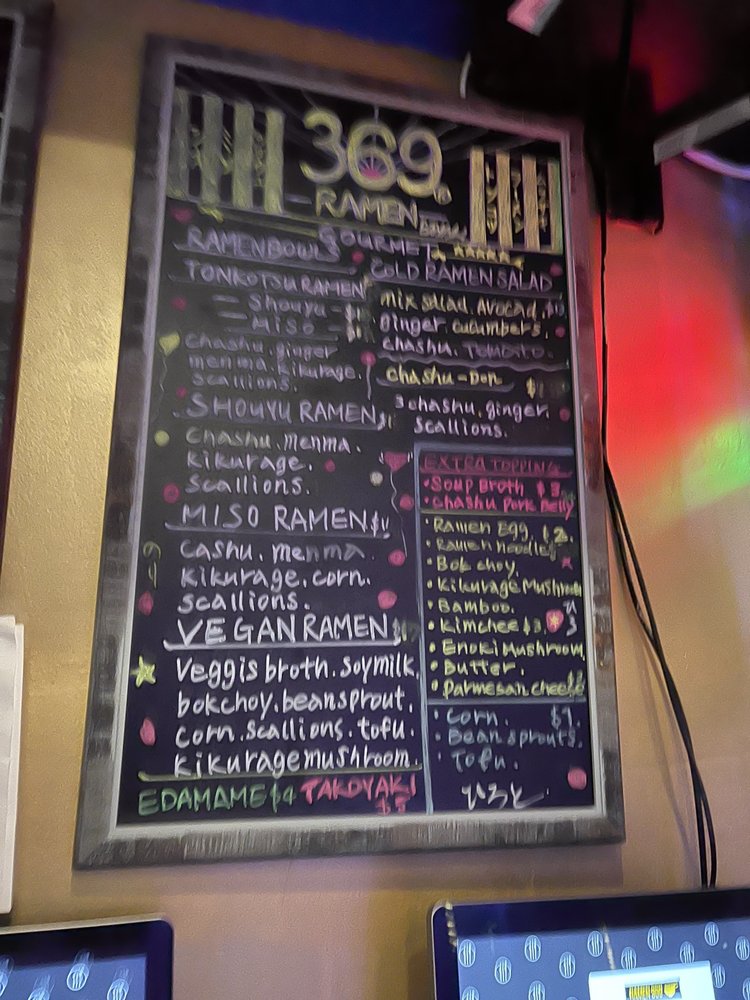 369
RAMEN
GOURMET
RAMEN BOWLS
TONKOTSU RAMEN
Shouyu
Miso
Chashu. ginger
menma. Kikurage.
Scallions.
SHOUYU RAMEN
Chashu. menma.
Kikurage.
Scallions.
MISO RAMEN
Cashu. menma
Kikurage. corn.
scallions.
VEGAN RAMEN
Veggis broth. soymilk.
bokchoy. beansprout.
corn. scallions. tofu.
Kikurage mushroom.
EDAMAME $4
TAKOYAKI
COLD RAMEN SALAD
mix salad. Avocad.
ginger cucumbers.
chashu. Tomato.
Chashu-Don
3 chashu. ginger.
scallions.
EXTRA TOPPING
• Soup broth $3
• Chashu Pork Belly
• Ramen Egg. $2.
• Ramen noodles
• Bok choy.
• Kikurage Mushroom
• Bamboo.
• Kimchee $3.
• Enoki Mushroom
• Butter.
• Parmesan cheese
• Corn. $1.
• Bean sprouts.
• Tofu.
ひろと